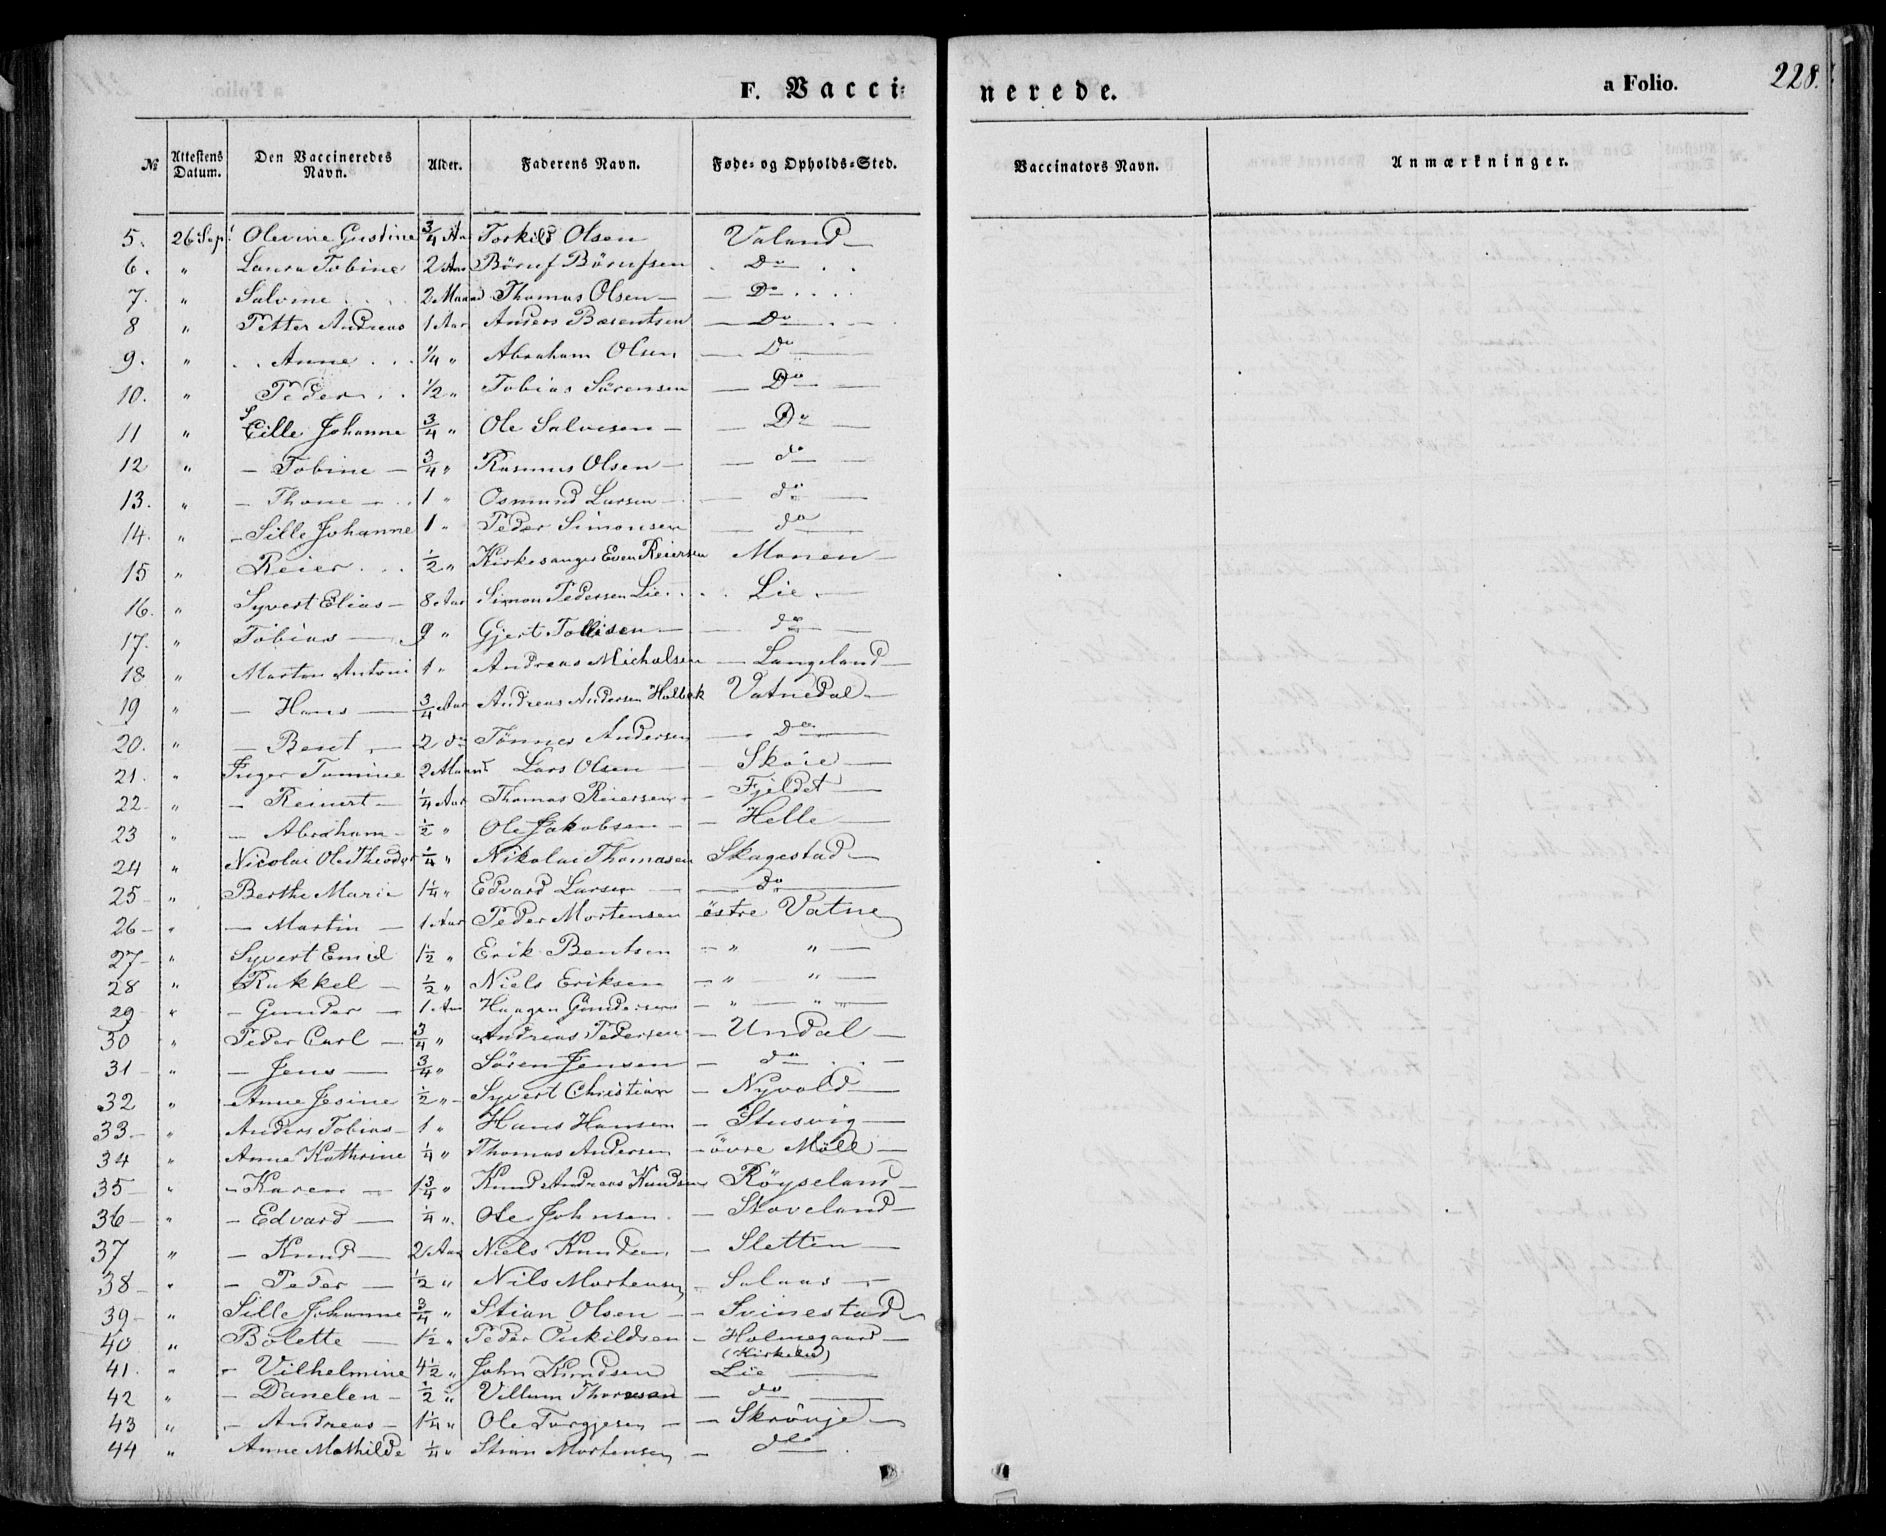 F. Vacci= nerede. a Folio. 228.
№ Attestens Datum. Den Vaccineredes Navn. Alder. Faderens Navn. Føde= og Opholds=Sted. Vaccinators Navn. Anmærkninger.
5. 26 Sept. Olevine Gustine 3/4 Aar Torkild Olsen Valand
6. " Laura Tobine 2 Aar Børuf Børufsen Do
7. " Salvine 2 Maaned Thomas Olsen Do
8 " Petter Andreas 1 Aar Anders Bærentsen Do
9. " Anne 1/4 " Abraham Olsen Do
10. " Peder 1/2 " Tobias Sörensen Do
11 " Sille Johanne 3/4 " Ole Salvesen Do
12 " Tobine 3/4 " Rasmus Olsen do
13. " Thone 1 " Osmund Larsen do
14. " Sille Johanne 1 " Peder Simonsen do
15 " Reier 1/2 " Kirkesanger Even Reiersen Monen
16. " Syvert Elias 8 Aar Simon Pedersen Lie Lie
17. " Tobias 9 " Gjert Tollisen do
18 " Morten Antoni 1 " Andreas Micholsen Langeland
19 " Hans 3/4 Aar Andreas Andersen Holbek Vatnedal
20. " Bent 2 do Tönnes Andersen Do
21. " Inger Tomine 2 Maand Lars Olsen Skoie
22 " Reinert 1/4 Aar Thomas Reiersen Fjeldet
23 " Abraham 1/2 " Ole Jakobsen Helle
24 " Nicolai Ole Theodor 1/4 " Nikolai Thomasen Skagestad
25 " Berthe Marie 1 1/4 " Edvard Larsen do
26 " Martin 1 Aar Peder Mortensen östre Vatne
27 " Syvert Emil 1 1/2 " Erik Bentsen " "
28 " Rakkel 1/2 " Niels Eriksen " "
29 " Gunder 1 Aar Haagen Gundersen " "
30 " Peder Carl 3/4 " Andreas Pedersen Undal
31 " Jens 3/4 " Sören Jensen do
32 " Anne Jesine 1/2 " Syvert Christian Nyvold
33 " Anders Tobias 1 " Hans Hansen Stusvig
34 " Anne Kathrine 1/4 " Thomas Andersen övre Möll
35 " Karen 1 3/4 " Knud Andreas Knudsen Röyseland
36 " Edvard 1/4 " Ole Johnsen Stoveland
37 " Knud 2 Aar Niels Knudsen Sletten
38 " Peder 1/2 " Nils Mortensen Solaas
39 " Sille Johanne 3/4 " Stian Olsen Svinestad
40 " Bolette 1 1/2 " Peder Onkildsen Holmegaard
41. " Vilhelmine 4 1/2 " John Knudsen (Kirkelie) Lie
42 " Danelen 1/2 " Villum Thoresen do
43 " Andreas 1 1/4 " Ole Torgjesen Skrövje
44 " Anne Mathilde 1/4 " Stian Mortensen do